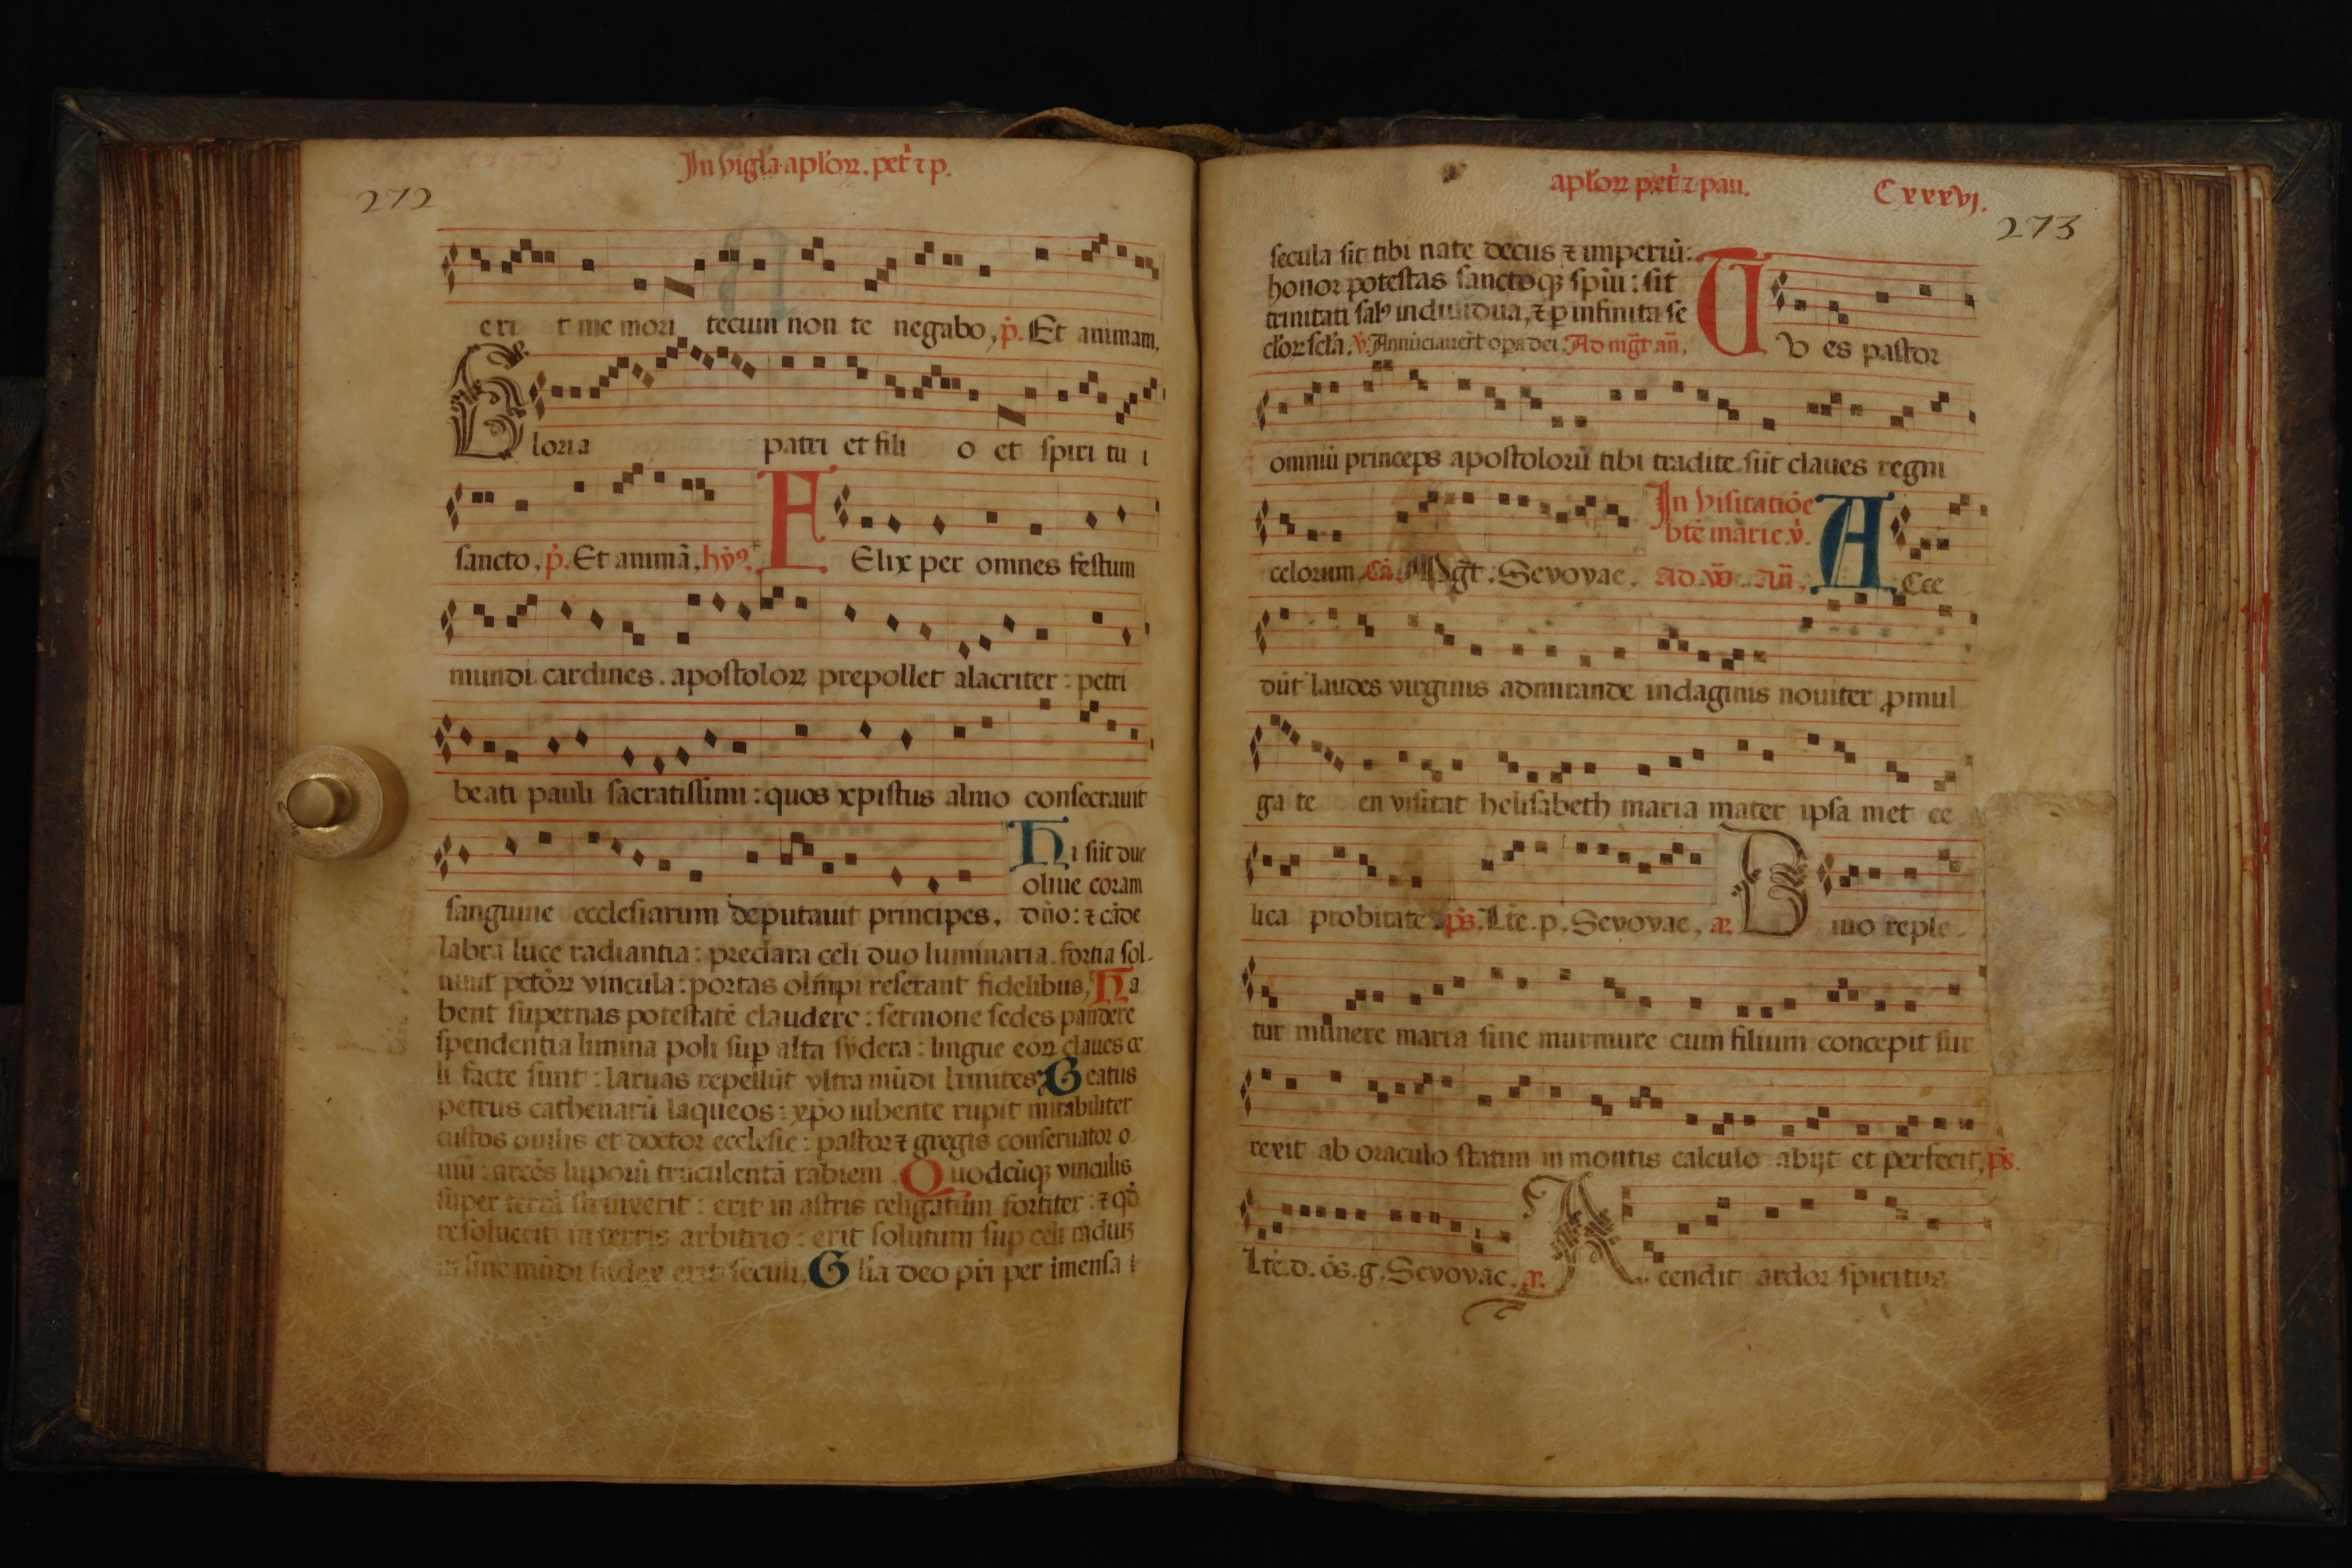 In vigl'a apl'oꝝ. pet' ⁊ p.
272
eri t me mori tecum non te negabo, p̾. Et animam.
Gloria patri et fili o et spiri tu i
sancto, p̾. Et animā, hȳꝰ. FElix per omnes festum
mundi cardines. apostoloꝝ prepollet alacriter : petri
beati pauli sacratissimi : quos xpistus almo consecrauit
Hi sūt due
oliue coram
sanguine ecclesiarum deputauit principes, dño: ⁊ cāde
labra luce radiantia : preclara celi duo luminaria. fortia sol-
uunt petōꝝ vincula : portas olimpi reserant fidelibus, Ha
bent supernas potestatē claudere : sermone sedes pandere
spendentia limina poli suꝑ alta sydera : lingue eoꝝ claues ce
li facte sunt : laruas repellūt vltra mūdi limites, Beatus
petrus cathenarū laqueos : xp̄o iubente rupit mirabiliter
custos ouilis et doctor ecclesie : pastor ⁊ gregis conseruator o
uiū : arcēs luporū truculentā rabiem. Quodcūqꝫ vinculis
super terrā strinxerit : erit in astris religatum fortiter : ⁊ qd̄
resoluerit in terris arbitrio : erit solutum sup celi radiuꝫ
in fine mūdi iudex erit seculi, Glīa deo pr̄i per imensa
apl'oꝝ pet' ⁊ pau. Cxxxvj.
273
secula sit tibi nate decus ⁊ imperiū:
honor potestas sanctoqꝫ spiū : sit
trinitati salꝰ indiuidua, ⁊ ꝑ infinita se
cl'oꝝ scl'a. v̾. Annūciauerūt oꝑa dei. Ad mḡt añ, Tv es pastor
omniū princeps apostolorū tibi tradite sūt claues regni
In visitatiōe
bte marie.v̾.
celorum, Cā. Mḡt : Sevovae. ad. v̄. Añ. ACce
dūt laudes virginis admirande indaginis nouiter ꝓmul
ga te en visitat helisabeth maria mater ipsa met ce
lica probitate, ps. Lte.p, Sevovae, a. Diuo reple-
tur munere maria sine murmure cum filium concepit sur
rexit ab oraculo statim in montis calculo abijt et perfecit, ps.
Lte.d. os. g, Sevovae, a. Acendit ardor spiritus